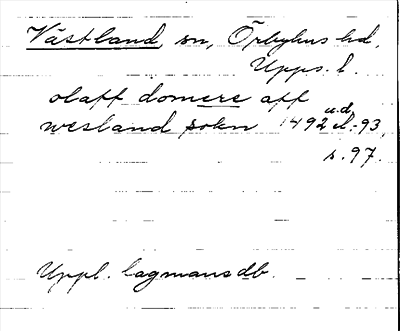 Västland, sn, Örbyhus hd,
Upps. l.
olaff domere aff
wesland sokn 1492 u.d. el. -93,
s. 97.
Uppl. lagmansdb.